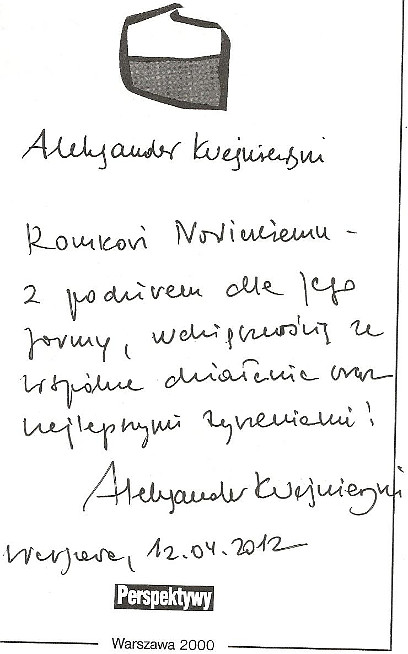 Aleksander Kwaśniewski
Romkowi Nowickiemu -
z podziwem dla jego
formy, wdzięcznością za
wspólne działanie oraz
najlepszymi życzeniami!
Aleksander Kwaśniewski
Warszawa, 12.04.2012
Perspektywy
Warszawa 2000